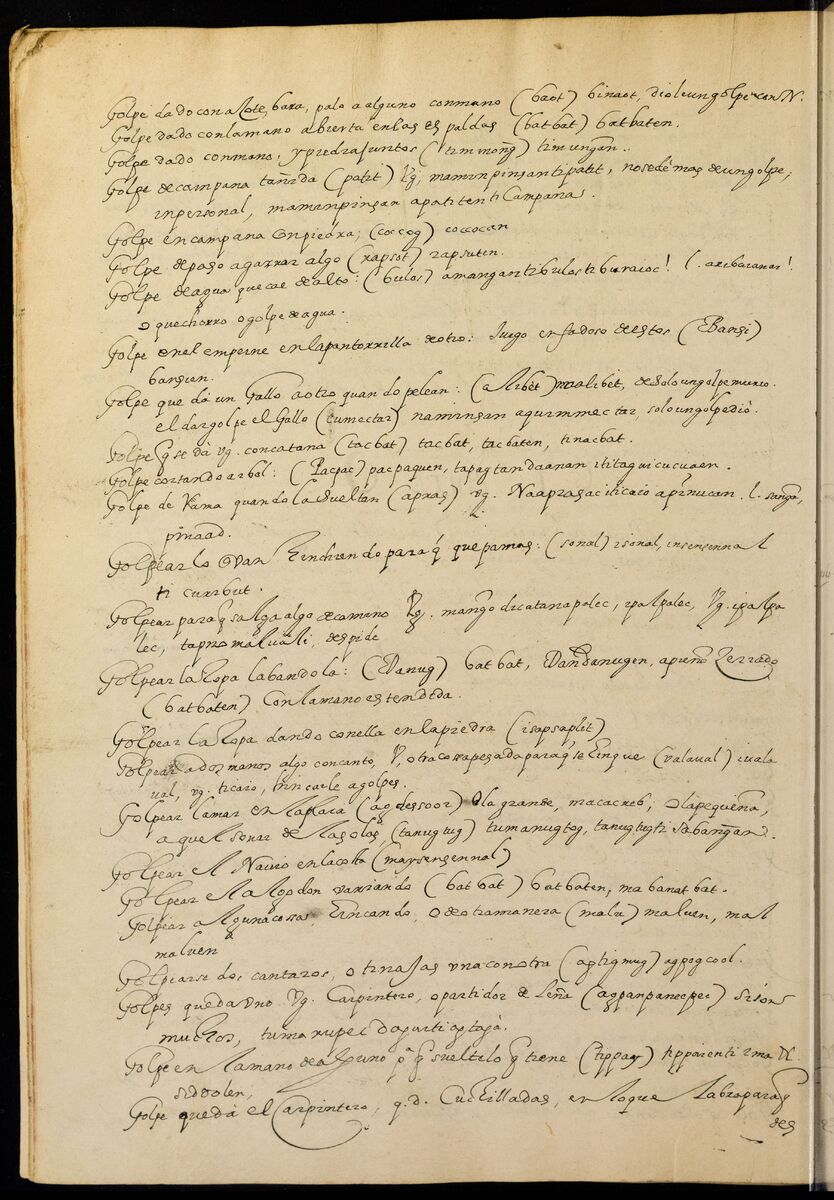 Golpe dado con asote, bara, palo a alguno con mano (baot) binaot, diole un golpe con N.
Golpe dado con la mano abierta en las espaldas (batbat) batbaten.
Golpe dado con mano, y piedra juntos (timmong) timungan.
Golpe de campana tañida (patit) Vg. maminpinsan ti patit, no se dé mas de un golpe;
inpersonal, maminpinsan apatiten ti Campana.
Golpe en campana con piedra; (coccog) coccocan
Golpe de paso agarrar algo (rapsot) rapsuten.
Golpe de agua que cae de alto: (bulos) amangan ti bulos ti buraioc! l.
o que chorro o golpe de agua.
Golpe en el empeine en la pantorrilla de otro: Juego enfadoso de estos (Bansi)
bansien.
Golpe que dá un Gallo a otro quando pelean: (alibet) malibet, de solo un golpe murio.
el dar golpe el Gallo (cumectar) naminsan a qummectar, solo un golpe dio.
Golpe q se dà vg. con catana (tacbat) tacbat, tacbaten, tinacbat.
Golpe cortando arbol: (Pacpac) pacpaquen,
Golpe de Rama quando la sueltan (apras) vg. Naapras ac iti caio a l.
Golpear lo que van hinchiendo para q quepa mas: (sonal) isonal, insensennal
ti curibut.
Golpear para q salga algo de camino Vg. ipalpalec, Vg. ipalpa
lec,
Golpear la ropa labandola: (Danug) batbat, Dandanugen, a puño zerrado
(batbaten) con la mano estendida.
Golpear la Ropa dando con ella en la piedra (isapsaplit)
Golpear a dos manos algo con canto, V, otra cosa pesada para q se hinque (valaval) ivala
val, vg. ti caio, hincarle a golpes.
Golpear la mar en la plaia (agdessoor) ola grande, macacneb, ola pequeña,
aquel sonar de las olas, (tanugtug) tumanugtog, tanugtug ti sabangan.
Golpear el Navio en la costa (maysensennal)
Golpear el algodon variando (batbat) batbaten, mabanatbat.
Golpear alguna cossa hincando, o de otra manera (malu) maluen, mal
maluen
Golpearse dos cantaros, o tinajas una con otra (agtigmug) agpogcool.
Golpes que da uno Vg. Carpintero, o partidor de Leña (agpanpanecpec) si son
muchos,
Golpe en la mano de alguno pa q suelte lo q tiene (tippay) tippaien ti ima
Golpe que dà el Carpintero, q.d. Cuchilladas, en lo que labra para q
des